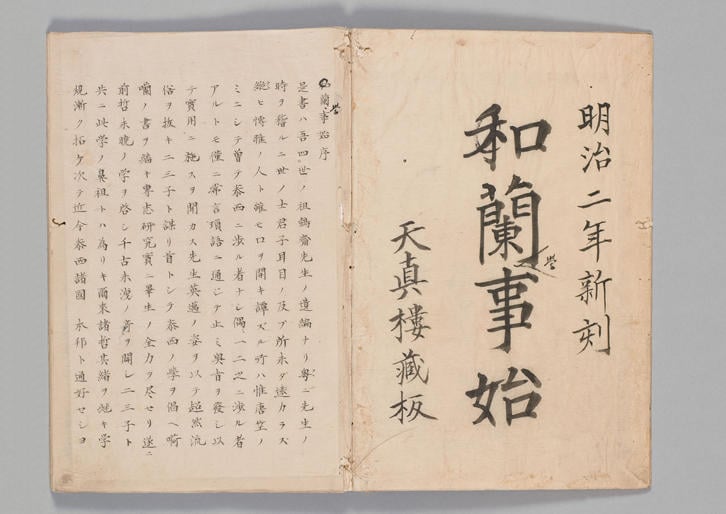 明治二年新刻
和蘭事始
学
天真樓藏板
蘭事始序
学
是書ハ吾四世ノ祖鷧齋先生ノ遺編ナリ粤ニ先生ノ
時ヲ稽ルニ世ノ士君子耳目ノ及ブ所未ダ遠カラズ
ヒ博雅ノ人ト雖モロヲ開キ譚ズル所ハ惟唐竺ノ
ミニシテ曽テ泰西ニ渉ル者ナシ偶一二之ニ渉ル者
アルトモ僅ニ寄言項語ニ通ジテ止ミ奥旨ヲ發シ以
テ實用ニ施スヲ聞カス先生英邁ノ姿ヲ以テ超然流
俗ヲ抜キ二三子ト謀リ首トシテ泰西ノ學ヲ倡ヘ荷
蘭ノ書ヲ繙キ專志研究實ニ畢生ノ全力ヲ尽セリ遂ニ
前哲未曉ノ学ヲ啓シ千古未洩ノ奇ヲ開レ二三子ト
共ニ此学ノ鼻祖トハ為リキ爾来諸哲其緒ヲ紹キ学
規漸ク拓ケ次テ近今泰西諸國 本邦ト通好セシヨ